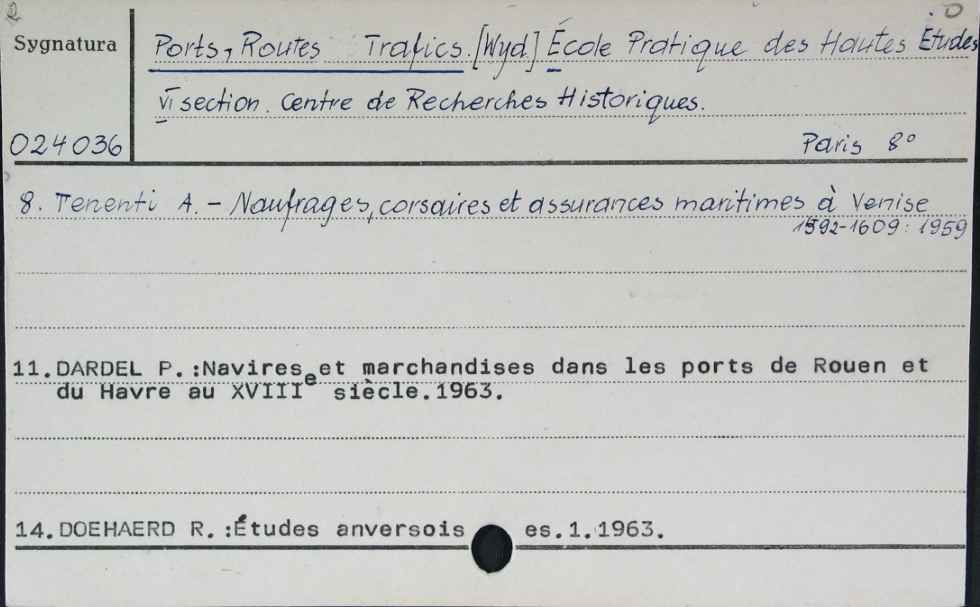 Sygnatura
Ports, Routes Trafics. [Wyd.] École Pratique des Hautes Etudes
VI section. Centre de Recherches Historiques.
024036
Paris 8°
8. Tenenti A. - Naufrages, corsaires et assurances maritimes à Venise
1592-1609: 1959
11. DARDEL P.:Navires et marchandises dans les ports de Rouen et
du Havre au XVIIIe siècle.1963.
14. DOEHAERD R.:Études anversois es.1.1963.